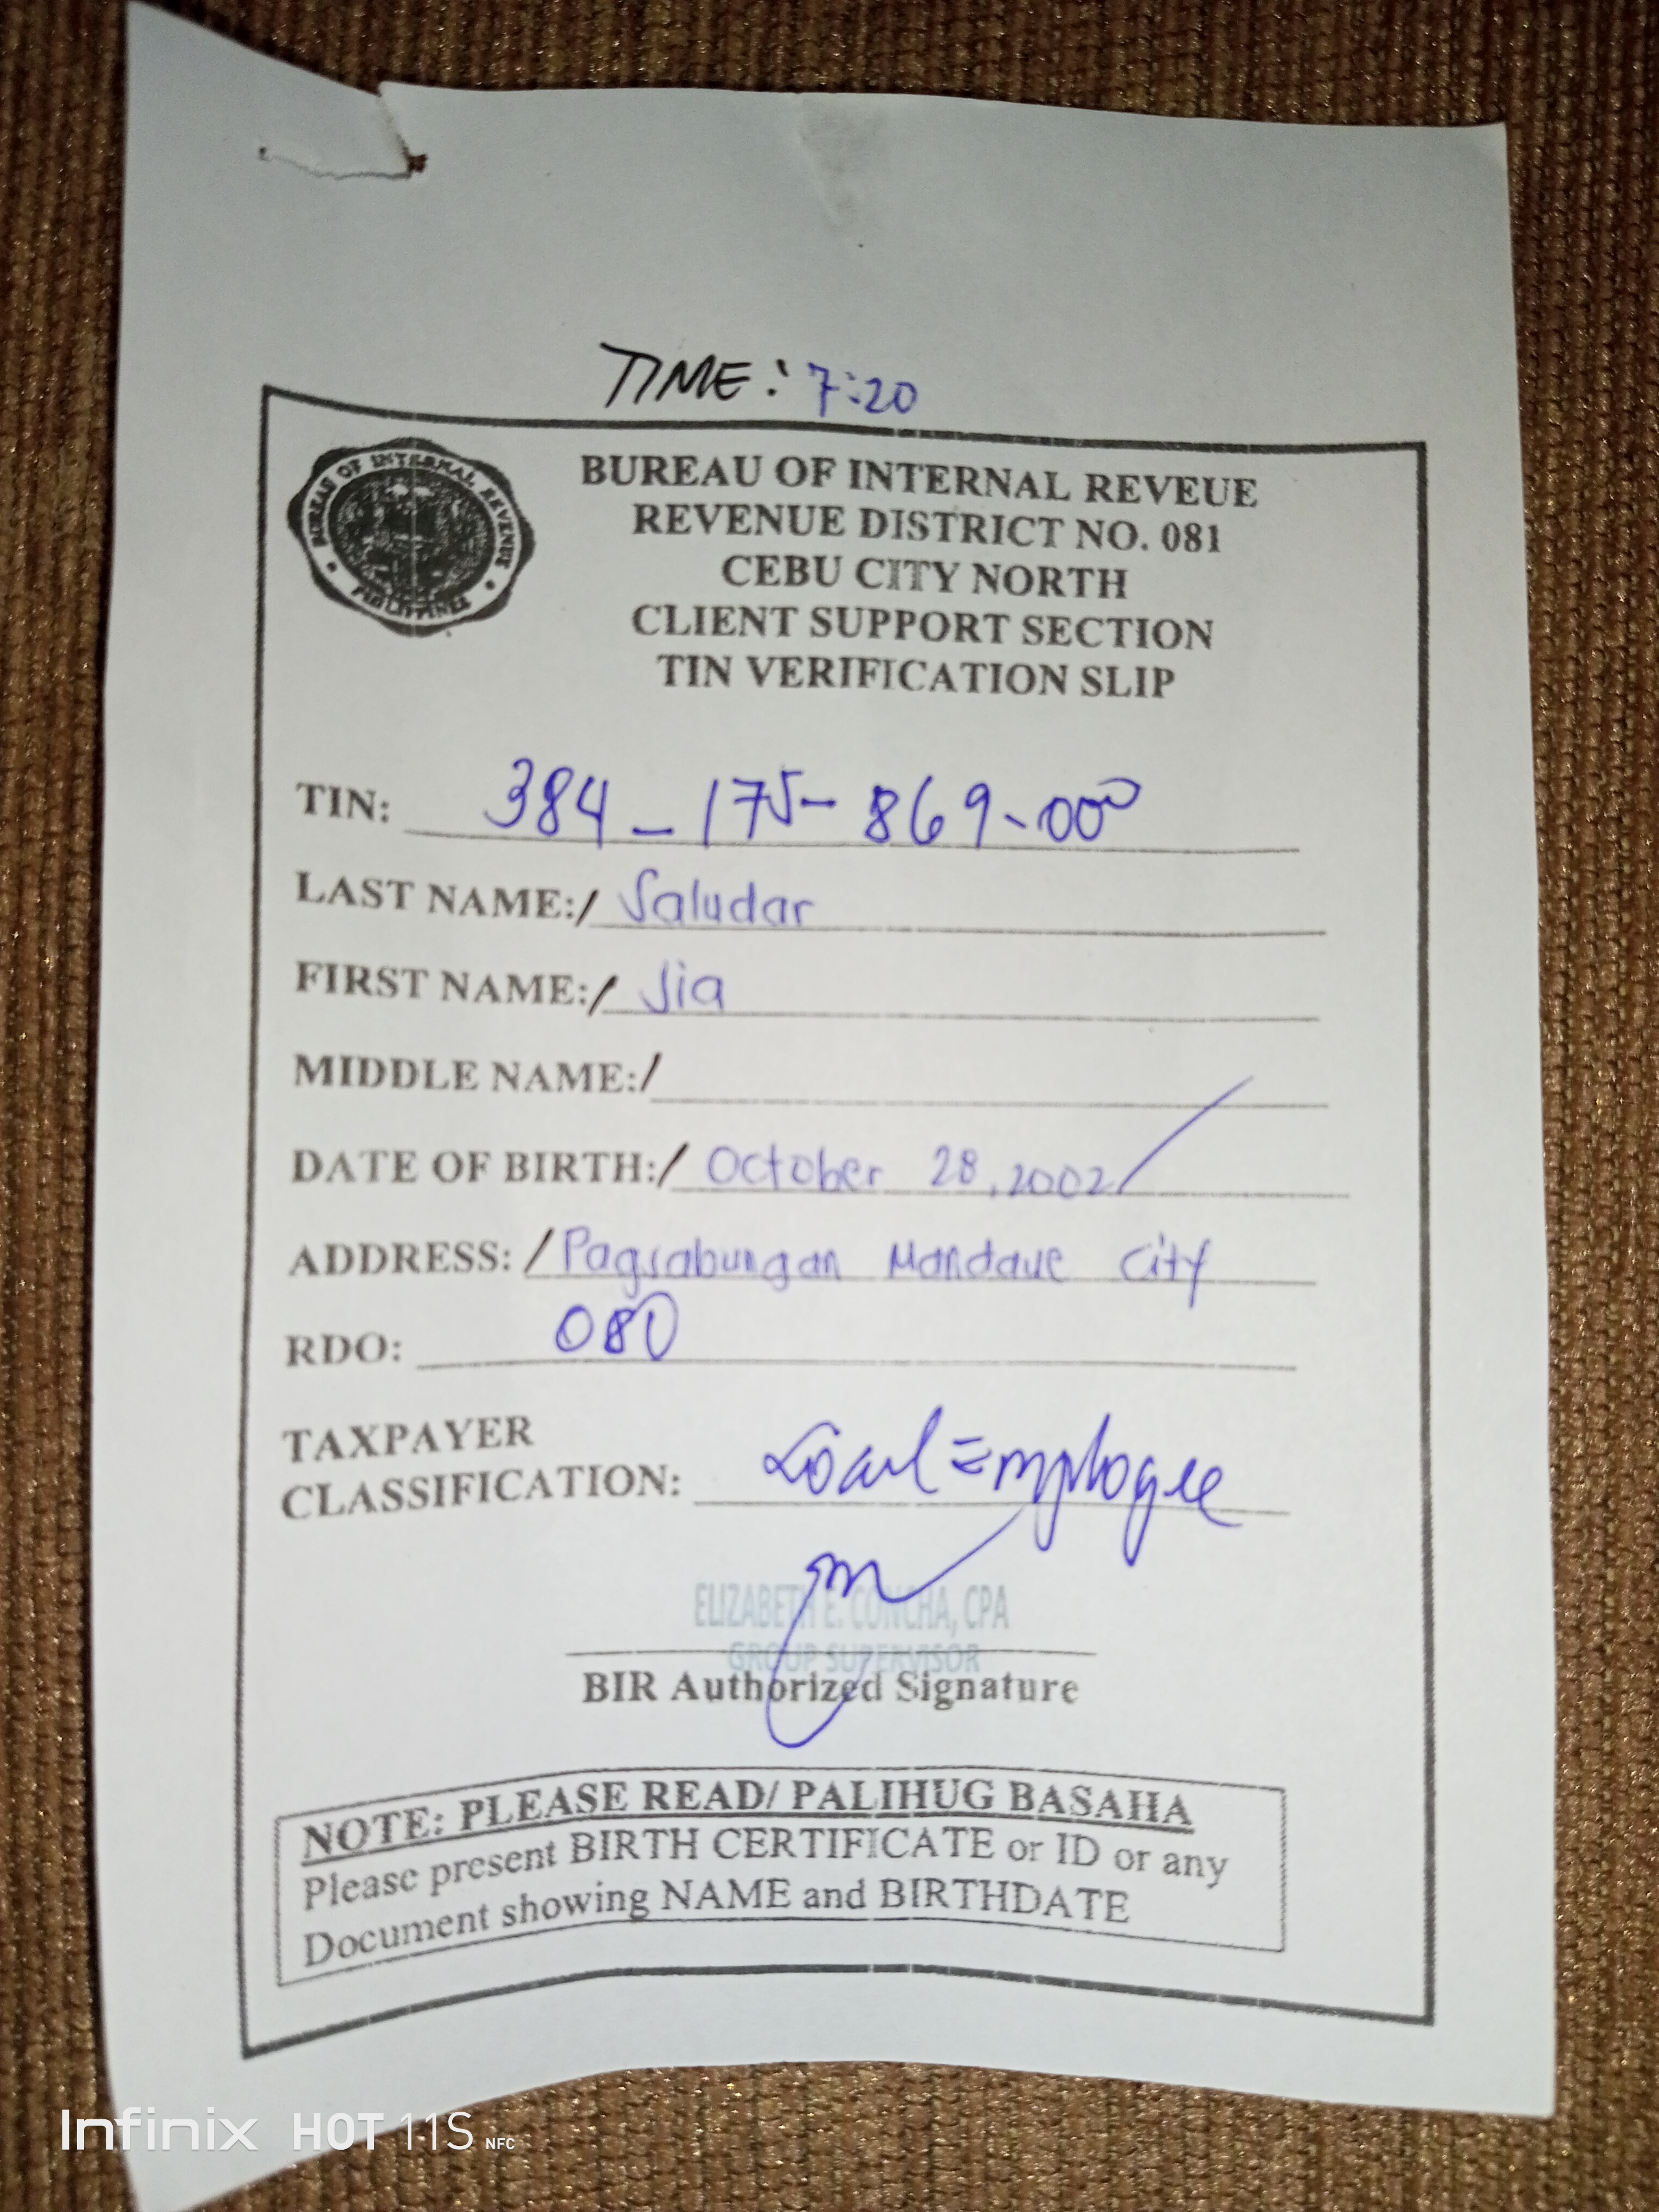 TIME: 7:20
BUREAU OF INTERNAL REVENUE
PHILIPPINES
BUREAU OF INTERNAL REVEUE
REVENUE DISTRICT NO. 081
CEBU CITY NORTH
CLIENT SUPPORT SECTION
TIN VERIFICATION SLIP
TIN: 384-175-869-000
LAST NAME:/ Saludar
FIRST NAME:/ Jia
MIDDLE NAME:/
DATE OF BIRTH:/ October 28, 2002
ADDRESS: / Pagsabungan Mandaue City
RDO: 080
TAXPAYER
CLASSIFICATION: Local Employee
ELIZABETH E. CONCHA, CPA
GROUP SUPERVISOR
BIR Authorized Signature
NOTE: PLEASE READ/ PALIHUG BASAHA
Please present BIRTH CERTIFICATE or ID or any
Document showing NAME and BIRTHDATE
Infinix HOT 11S NFC